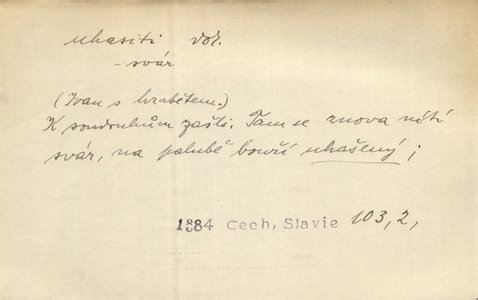 uhasiti voz.
- svár
(Ivan s hrabětem.)
K soudruhům zašli. Tam se znova nítí
svár, na palubě bouří uhašený;
1884 Čech, Slavie 103, 2,